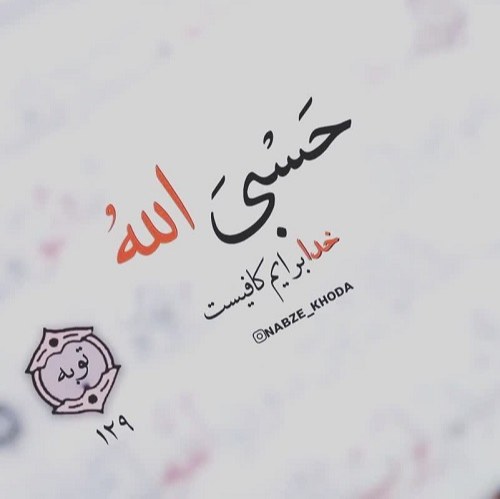 حَسْبِیَ اللهُ
خدا برایم کافیست
@NABZE_KHODA
توبه
١٢٩